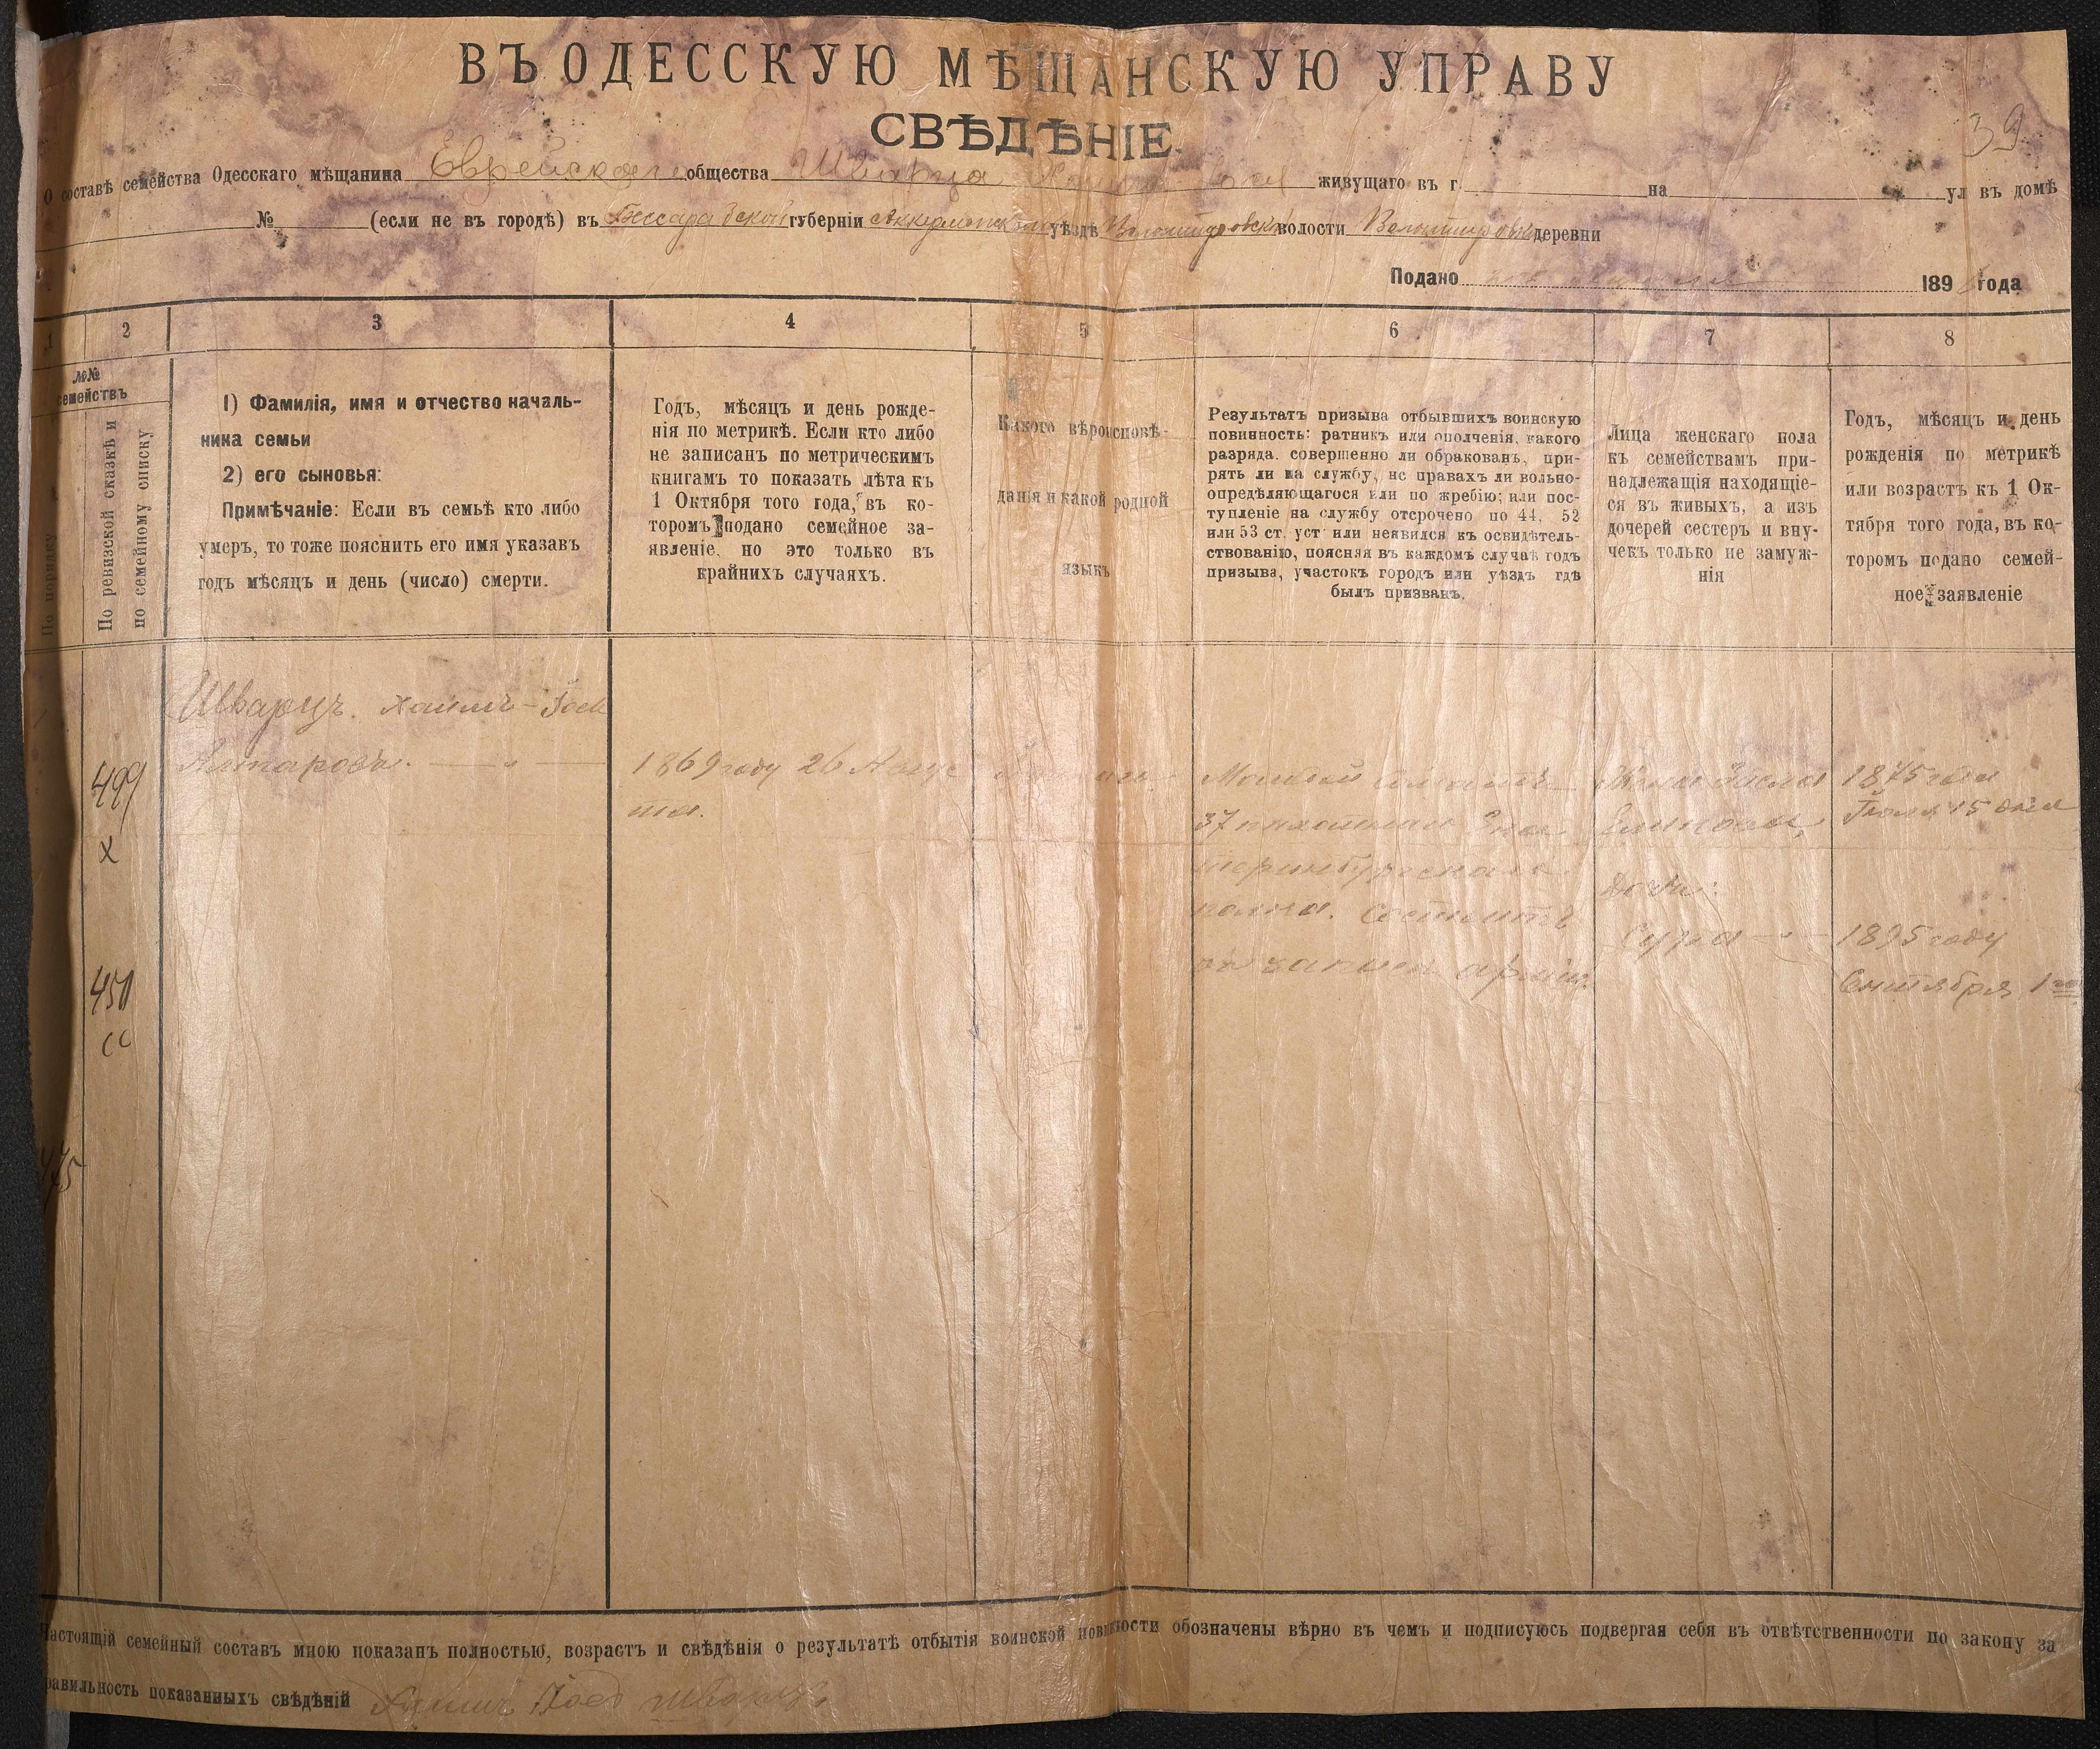 ВЪ ОДЕССКУЮ МѢЩАНСКУЮ УПРАВУ
СВѢДѢНІЕ
39
О составѣ семейства Одесскаго мѣщанина Еврейскаго общества Шварца живущаго въ г. на ул въ домѣ
№ (если не въ городѣ) въ Бессарабской губерніи Аккерманскомъ уѣздѣ волости деревни
Подано 189 года
1 2 3 4 5 6 7 8
№№
семействъ
По порядку
По ревизской сказкѣ и
по семейному списку
1) Фамилія, имя и отчество началь-
ника семьи
2) его сыновья:
Примѣчаніе: Если въ семьѣ кто либо
умеръ, то тоже пояснить его имя указавъ
годъ мѣсяцъ и день (число) смерти.
Годъ, мѣсяцъ и день рожде-
нія по метрикѣ. Если кто либо
не записанъ по метрическимъ
книгамъ то показать лѣта къ
1 Октября того года, въ ко-
торомъ подано семейное за-
явленіе, но это только въ
крайнихъ случаяхъ.
Какого вѣроисповѣ-
данія и какой родной
языкъ
Результатъ призыва отбывшихъ воинскую
повинность: ратникъ или ополченія, какого
разряда, совершенно ли обракованъ, при-
рять ли на службу, нс правахъ ли вольно-
опредѣляющагося или по жребію; или пос-
тупленіе на службу отсрочено по 44, 52
или 53 ст. уст или неявился къ освидѣтель-
ствованію, поясняя въ каждомъ случаѣ годъ
призыва, участокъ городъ или уѣздъ гдѣ
былъ призванъ.
Лица женскаго пола
къ семействамъ при-
надлежащія находящіе-
ся въ живыхъ, а изъ
дочерей сестеръ и вну-
чекъ только не замуж-
нія
Годъ, мѣсяцъ и день
рожденія по метрикѣ
или возрастъ къ 1 Ок-
тября того года, въ ко-
торомъ подано семей-
ное заявленіе
Шварцъ. Хаимъ-Іось
1869 году 26 Авгус
та.
499
х
37 пѣхотнаго Эка
теринбургскаго
полка. Состоитъ
въ запасѣ арміи.
Жена
Дочь:
Сура
1875 года
Іюля 15 дня
1895 году
Сентября 1го
450
475
Настоящій семейный составъ мною показанъ полностью, возрастъ и свѣдѣнія о результатѣ отбытія воинской повинности обозначены вѣрно въ чемъ и подписуюсь подвергая себя въ отвѣтственности по закону за
равильность показанныхъ свѣдѣній Хаимъ Шварцъ